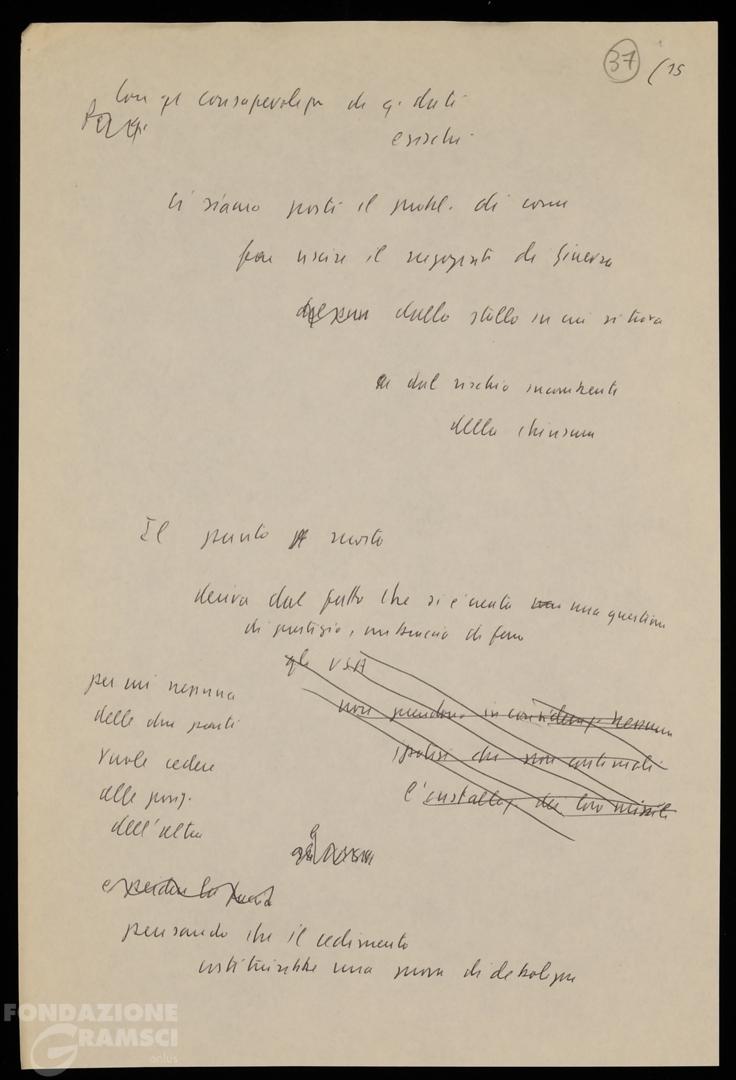 37 /15
Con qt consapevolezza di q. dati
e rischi
ci siamo posti il probl. di come
far uscire il negoziato di Ginevra
dallo stallo in cui si trova
e dal rischio incombente
della chiusura
Il punto morto
deriva dal fatto che si è creata una questione
di prestigio, un braccio di ferro
gli USA
non prendono in consideraz. nessuna
ipotesi che non contempli
l'installaz. dei loro missili
per cui nessuna
delle due parti
vuole cedere
alle posiz.
dell'altra
pensando che il cedimento
costituirebbe una prova di debolezza
FONDAZIONE
GRAMSCI
onlus